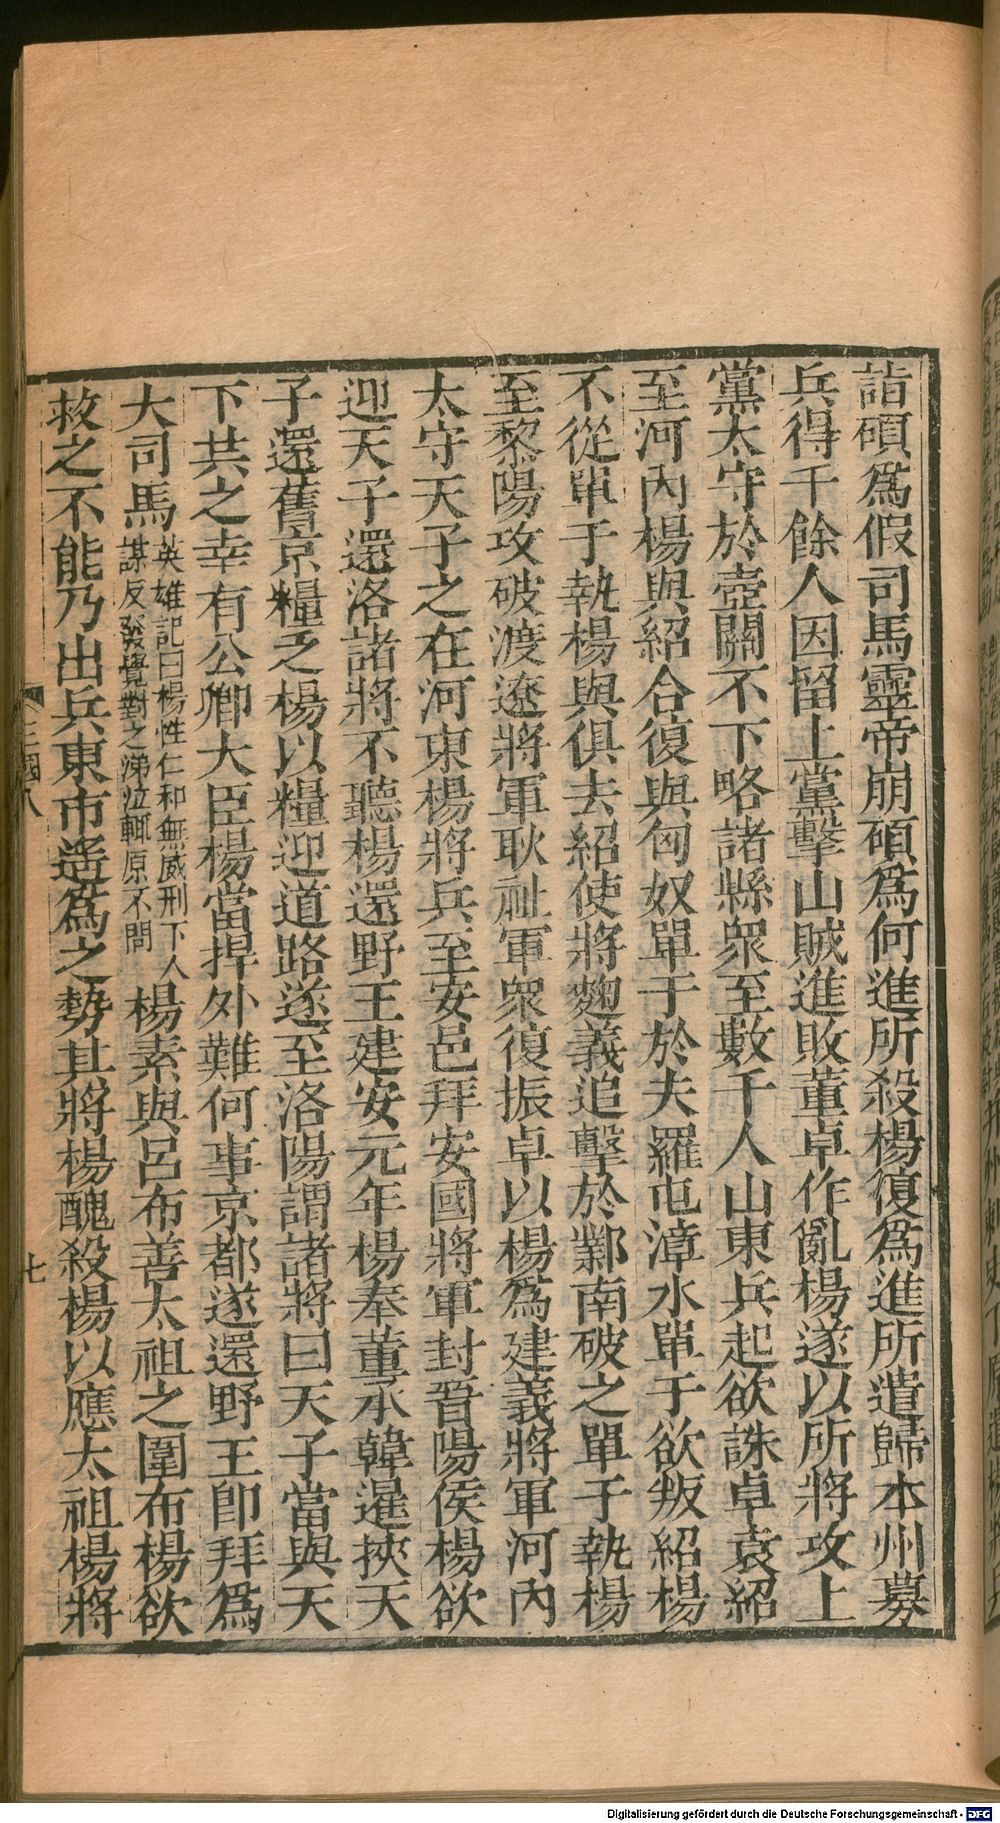 詣碩爲假司馬靈帝崩碩爲何進所殺楊復爲進所遣歸本州募
兵得千餘人因留上黨擊山賊進敗董卓作亂楊遂以所將攻上
黨太守於壺關不下略諸縣衆至數千人山東兵起欲誅卓袁紹
至河內楊與紹合復與匈奴單于於夫羅屯漳水單于欲叛紹楊
不從單于執楊與俱去紹使將麴義追擊於鄴南破之單于執楊
至黎陽攻破渡遼將軍耿祉軍衆復振卓以楊爲建義將軍河內
太守天子之在河東楊將兵至安邑拜安國將軍封晉陽侯楊欲
迎天子還洛諸將不聽楊還野王建安元年楊奉董承韓暹挾天
子還舊京糧乏楊以糧迎道路遂至洛陽謂諸將曰天子當與天
下共之幸有公卿大臣楊當捍外難何事京都遂還野王卽拜爲
大司馬英雄記曰楊性仁和無威刑下人謀反發覺對之涕泣輒原不問楊素與呂布善太祖之圍布楊欲
救之不能乃出兵東市遥爲之勢其將楊醜殺楊以應太祖楊將
三國八
七
Digitalisierung gefördert durch die Deutsche Forschungsgemeinschaft - DFG